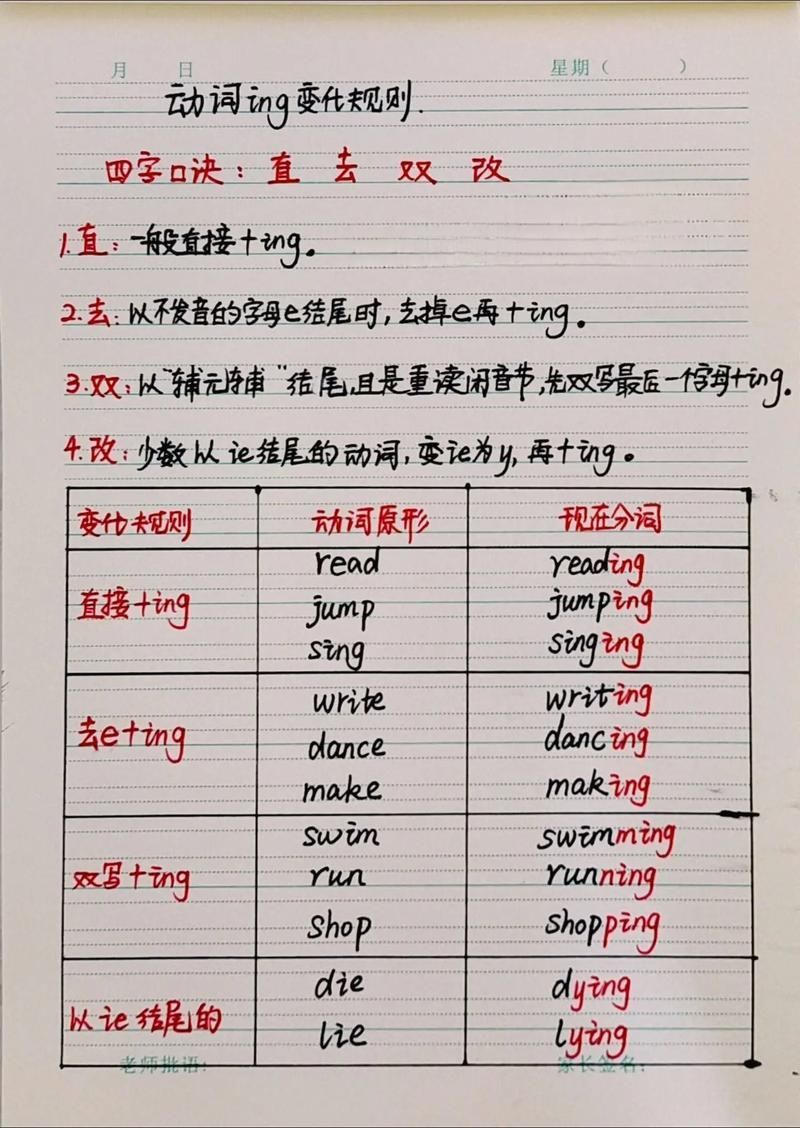 月 日 星期（ ）
动词ing变化规则.
四字口诀：直 去 双 改
1.直：一般直接+ing。
2.去：以不发音的字母e结尾时，去掉e再+ing。
3.双：以“辅元辅”结尾,且是重读闭音节,先双写最后一个字母+ing。
4.改：少数以ie结尾的动词，变ie为y,再+ing。
变化规则 动词原形 现在分词
read reading
直接+ing jump jumping
sing singing
write writing
去e+ing dance dancing
make making
swim swimming
双写+ing run running
shop shopping
die dying
以ie结尾的 lie lying
老师批语: 家长签名: